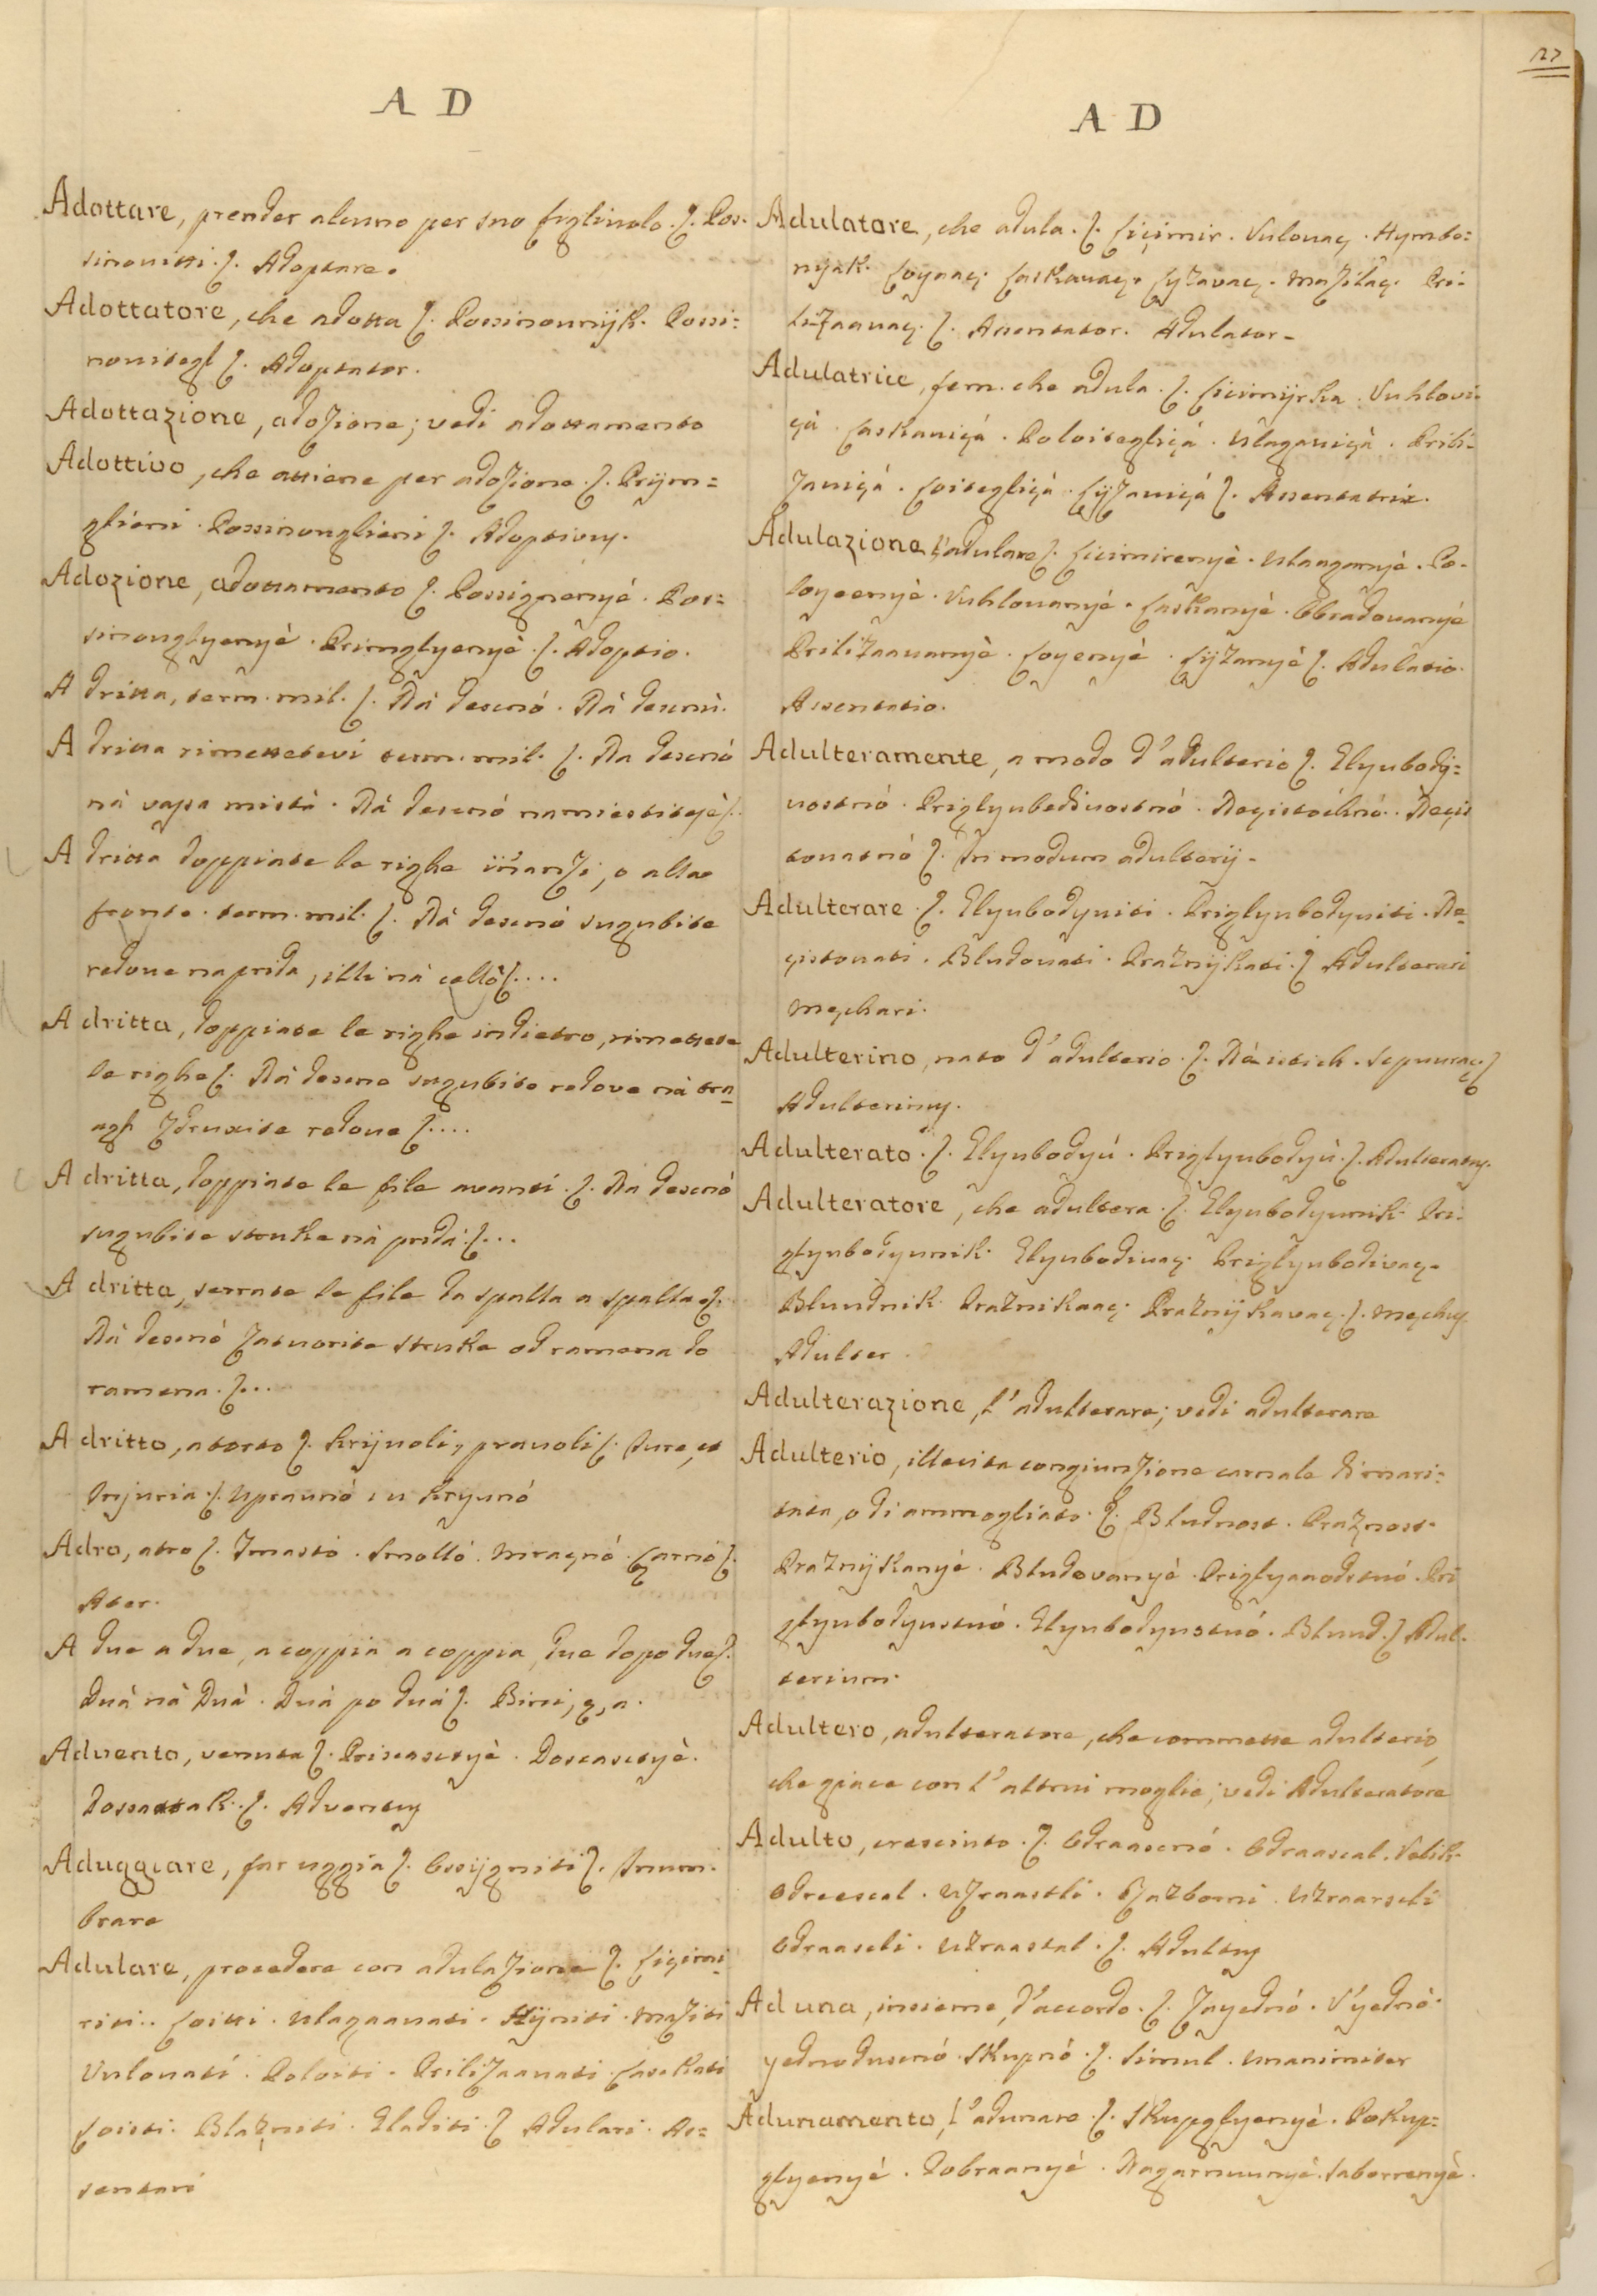 27
A D
Adottare, prender alcuno per suo figliuolo. ſ. Pos-
sinouitti. ſ. Adoptare.
Adottatore, che adotta ſ. Possinounijk. Possi=
nouitegl ſ. Adoptator.
Adottazione, adozione; vedi adottamento
Adottivo, che attiene per adozione. ſ. Prijm=
glieni. Possinouglieni ſ. Adoptivus.
Adozione, adottamento ſ. Possignényé. Pos=
sinouglyenyè. Priimglyenyè. ſ. Adoptio.
A dritta, term. mil. ſ. Nà desnó. Nà desnù.
A dritta rimettetevi term. mil. ſ. Na desnó
nà vassa mistà. Nà desnó namiestitesè ſ.
A dritta doppiate le righe innanzi, o alla
fronte. term. mil. ſ. Nà desnó sugubite
redoue naprida, illi nà cellò ſ....
A dritta, doppiate le righe indietro, rimettete
le righe ſ. Nà desno sugubite redove nà tra
agh zdruxite redoue ſ....
A dritta, doppiate le file avanti. ſ. Na desnó
sugubite struke nà prida. ſ...
A dritta, serrate le file da spalla a spalla ſ.
Nà desnó zatuorite struke od ramena do
ramena. ſ...
A dritto, a torto ſ. Krijuoli, prauoli ſ. Jure, et
Injuria. ſ. Upraunó, u kryunó
Adro, atro ſ. Tmasto. Smolló. Mragnó. Çarnò ſ.
Ater.
A due a due, a coppia a coppia, due dopo due ſ.
Duà nà Duà. Duà po duà ſ. Bini, ę, a.
Advento, venuta ſ. Priscasctyè. Doscasctyè.
Dossastak. ſ. Adventus
Aduggiare, far uggia ſ. Ossijgniti ſ. Inum-
brare
Adulare, procedere con adulazione ſ. Liçimi-
riti. Loitti. Ulagaauati. Hijniti. Maziti
Vulouati. Poloiti. Prilizaauati. Laskati
Loisti. Blazniti. Gladiti. ſ Adulari. As=
sentari
A D
Adulatore, che adula. ſ. Liçimir. Vulouaç. Hymbe=
nyak. Loyaaç. Laskauaç. Lyzavaç. Mazilaç. Pri-
lizaauaç. ſ. Assentator. Adulator.
Adulatrice, fem. che adula. ſ. Liçimijrka. Vuhlovi-
çà. Laskauiçà. Poloitegliçà. Ulagauiçà. Prili-
zauiçà. Loitegliçà. Lijzauiçà ſ. Assentatrix.
Adulazione, l'adulare ſ. Liçimirenyè. Ulaagamyè. Po-
loyeenyè. Vuhlouanyè. Laskanyè. Obradouanyè
Prilizaauanyè. Loyenyè. Lijzanyè ſ. Adulatio.
Assentatio.
Adulteramente, a modo d'adulterio ſ. Glyubody=
uostnó. Priglyubodiuostnó. Neçistoćknó. Neçis
touatnó ſ. In modum adulterij.
Adulterare. ſ. Glyubodyuiti. Priglyubodyuiti. Ne-
çistouati. Bludouati. Praznijkati. ſ Adulterari
Mechari.
Adulterino, nato d'adulterio. ſ. Nàsitich. Sepuuraç ſ
Adulterinus.
Adulterato. ſ. Glyubodyú. Priglyubodyù. ſ. Adulteratus.
Adulteratore, che adultera. ſ. Glyubodyunik. Pri-
glyubodyunik. Glyubodiuaç. Priglyubodivaç.
Bluudnik. Praznikaaç. Praznijkavaç. ſ. Męchus
Adulter.
Adulterazione, l'adulterare; vedi adulterare
Adulterio, illecita congiunzione carnale di mari-
tata, o di ammogliato. ſ. Bludnost. Praznost.
Praznijkanyè. Bludovanyè. Priglyaaodstuó. Pri
glyubodyustuó. Glyubodyustuó. Bluud. ſ Adul-
terium.
Adultero, adulteratore, che commette adulterio,
che giace con l'altrui moglie; vedi Adulteratore
Adulto, cresciuto. ſ. Odraascnó. Odraascal. Velik.
Odreescal. Uzraastli. Nazborni. Uzraarscli
Odraascli. Uzraastal. ſ. Adultus
Ad una, insieme, d'accordo. ſ. Zayednó. V'yednò.
yednodusnó. Skupnó. ſ. Simul. Unanimiter
Adunamento, l'adunare. ſ. Skupglyenyè. Pokup=
glyenyè. Dobraanyè. Nagarnuunyè. Saborrenyè.